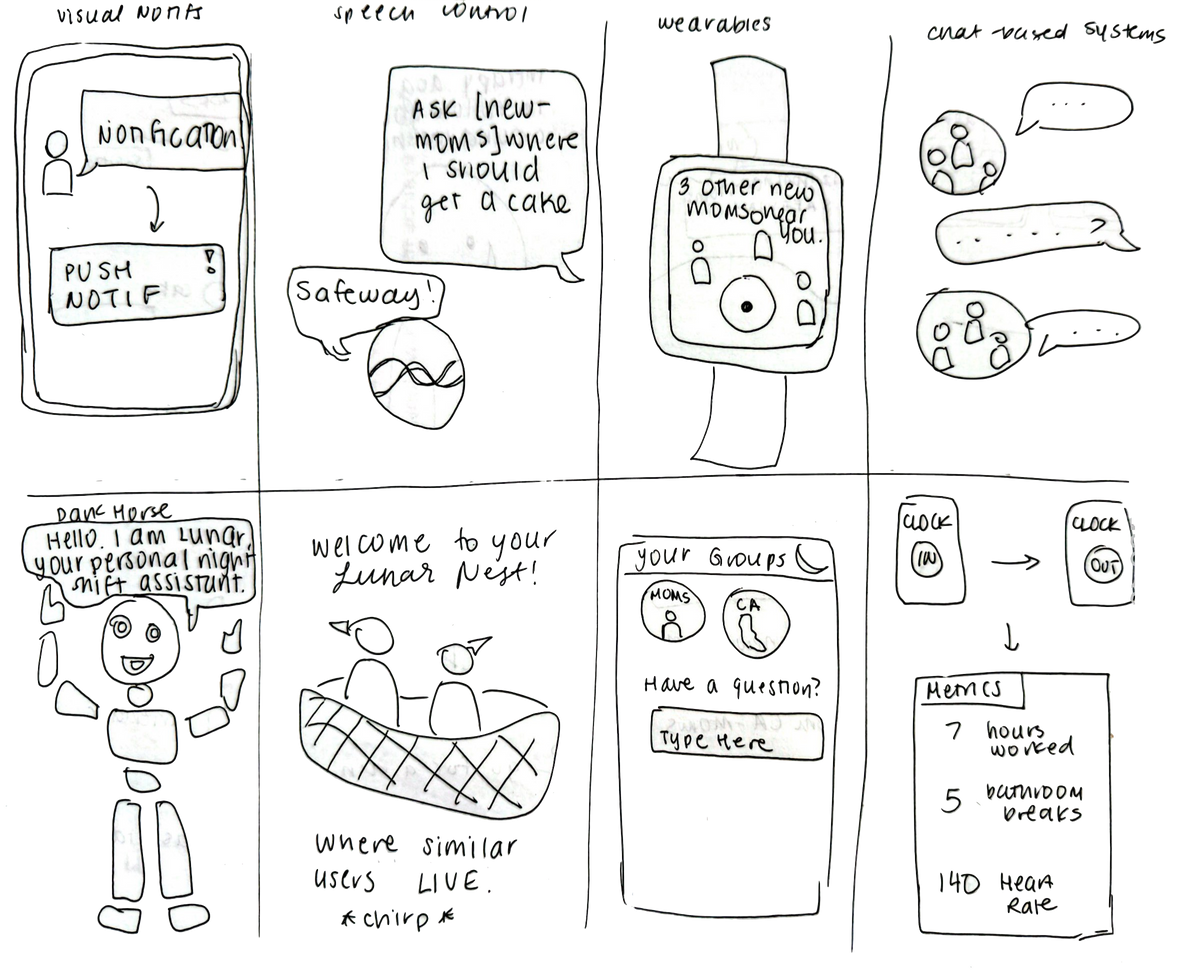 visual Notifs
Notification
PUSH !
NOTIF
speech control
ASK [new-
moms] where
I should
get a cake
Safeway!
wearables
3 other new
moms near
you.
chat-based systems
...
..... ?
....
Dark Horse
Hello. I am Lunar,
your personal night
shift assistant.
welcome to your
Lunar Nest!
where similar
users LIVE.
*chirp*
your Groups
MOMS
CA
Have a question?
Type Here
CLOCK
IN
CLOCK
OUT
Metrics
7 hours
worked
5 bathroom
breaks
140 Heart
Rate